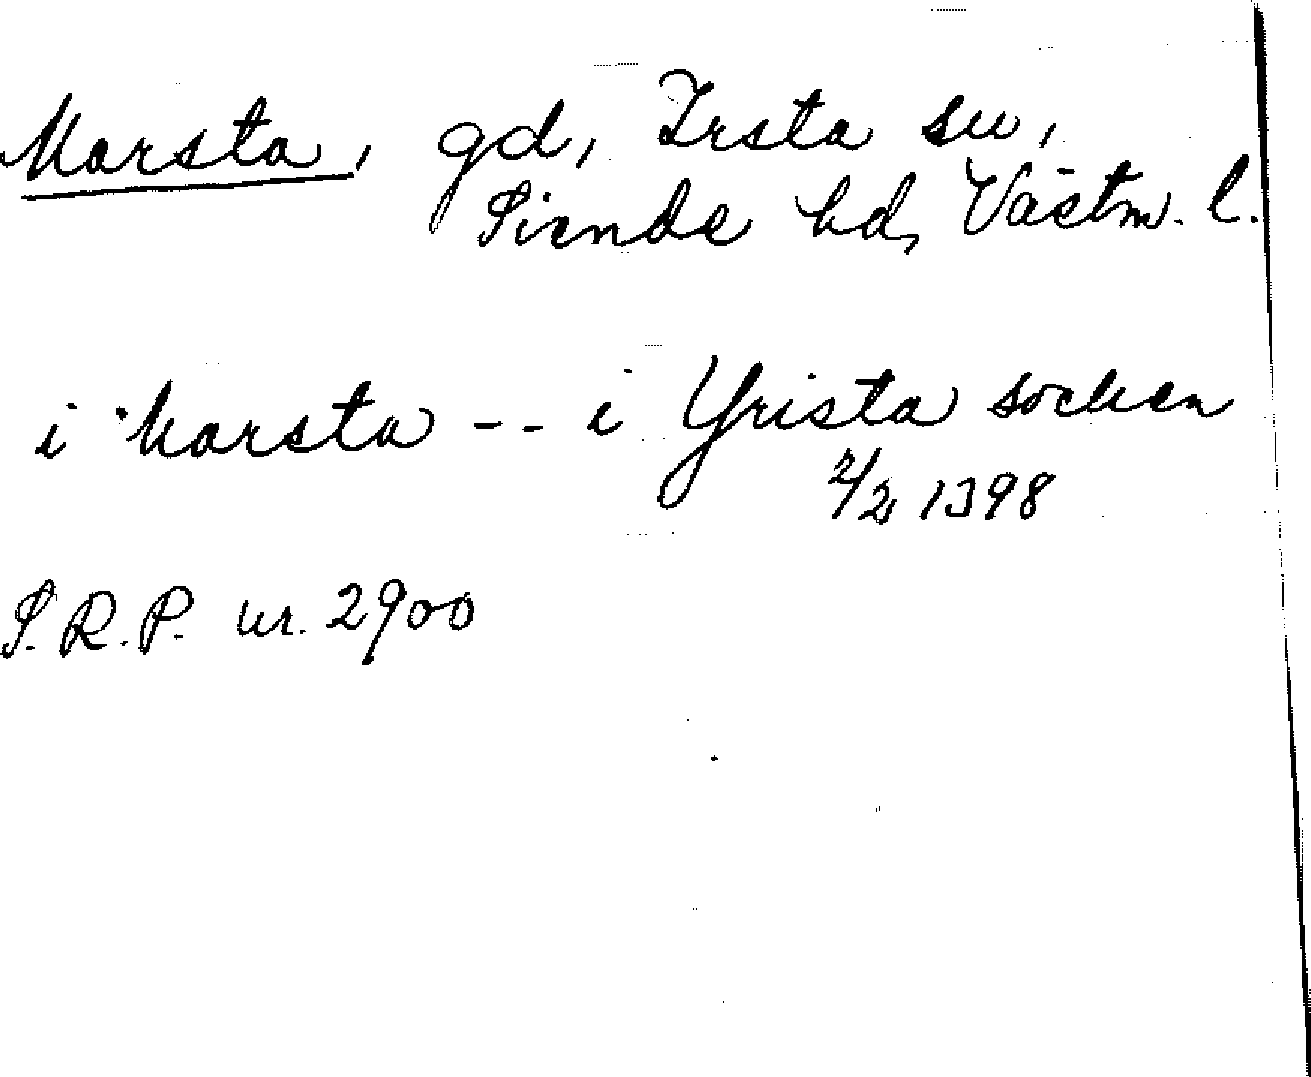 Marsta, gd, Irsta sn,
Siende hd, Västm. l.
i Marsta -- i Yrista socken
2/2 1398
S.R.P. nr. 2900